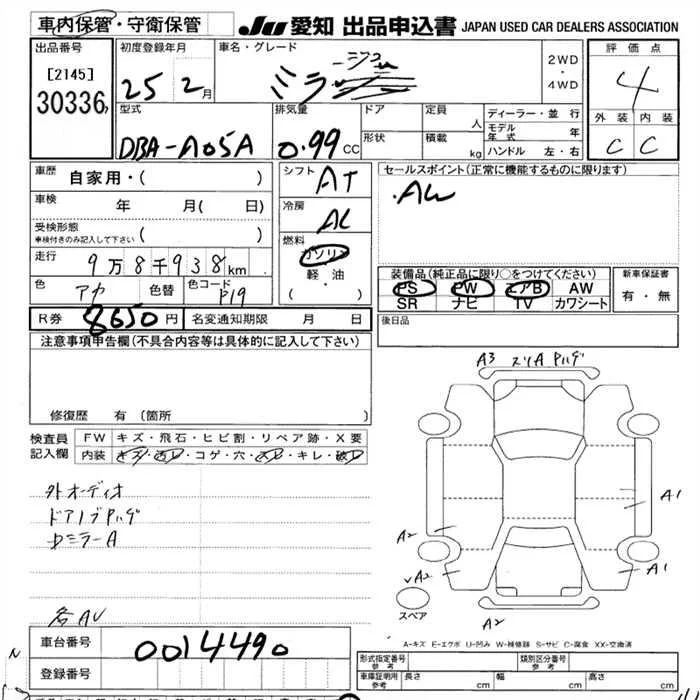 車内保管・守衛保管
JU 愛知 出品申込書 JAPAN USED CAR DEALERS ASSOCIATION
出品番号
[2145]
30336
初度登録年月
25 2月
車名・グレード
ミラ
2WD
・
4WD
評価点
4
外装 内装
C C
型式
DBA-A05A
排気量
0.99 CC
ドア
形状
定員
人
積載
kg
ディーラー・並行
モデル年式 年
ハンドル 左・右
車歴 自家用・( )
車検 年 月( 日)
受検形態
車検付きのみ記入して下さい ( )
走行 9万8千938km
色 アカ 色替 色コード P19
シフト AT
冷房 AC
燃料
ガソリン
軽・油
( ・ )
セールスポイント(正常に機能するものに限ります)
・AW
装備品(純正品に限り○をつけてください)
PS PW エアB AW
SR ナビ TV カワシート
新車保証書
有・無
R券 8650円 名変通知期限 月 日
後日品
注意事項申告欄(不具合内容等は具体的に記入して下さい)
修復歴 有(箇所 )
検査員記入欄
FW キズ・飛石・ヒビ割・リペア跡・X要
内装 キズ・汚レ・コゲ・穴・スレ・キレ・破レ
外オーディオ
ドアノブPハゲ
中ミラーA
各AU
A3 スリA Pハゲ
A1
A2
A1
√A2
A2
スペア
A-キズ E-エクボ U-凹み W-補修跡 S-サビ C-腐食 XX-交換済
車台番号 0014490
登録番号
型式指定番号 参考
類別区分番号 参考
車庫証明用 参考 長さ cm 幅 cm 高さ cm